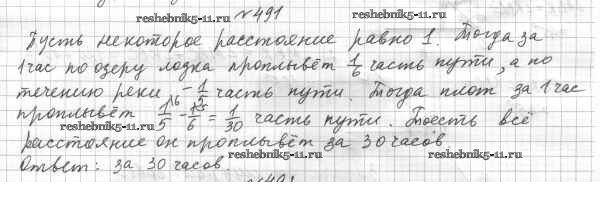 reshebnik5-11.ru №491
Пусть некоторое расстояние равно 1. Тогда за
reshebnik5-11.ru
1 час по озеру лодка проплывёт 1/6 часть пути, а по
течению реки – 1/5 часть пути. Тогда плот за 1 час
проплывёт 1/5 - 1/6 = 1/30 часть пути. Тоесть всё
reshebnik5-11.ru reshebnik5-11.ru
расстояние он проплывёт за 30 часов.
reshebnik5-11.ru
Ответ: за 30 часов.
reshebnik5-11.ru